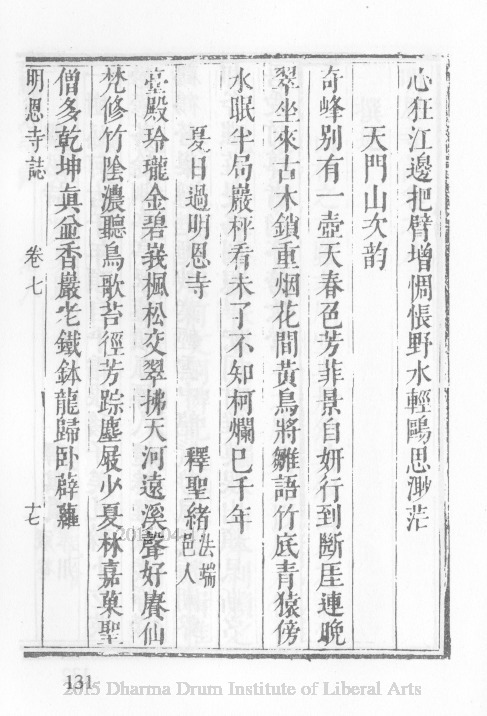 心狂江邊把臂增惆悵野水輕鷗思渺茫
天門山次韵
奇峰別有一壺天春色芳菲景自妍行到斷厓連晚
翠坐來古木鎖重烟花間黄鳥將雛語竹底青猿傍
水眠半局巖枰看未了不知柯爛巳千年
夏日過明恩寺 釋聖緒 法瑞 邑人
臺殿玲瓏金碧峩楓松交翠拂天河遠溪聲好賡仙
梵修竹陰濃聽鳥歌苔徑芳踪塵屐少夏林嘉菓聖
僧多乾坤眞㑒香嚴老鐵鉢龍歸卧薜蘿
明恩寺誌 卷七 十七
131
2015 Dharma Drum Institute of Liberal Arts